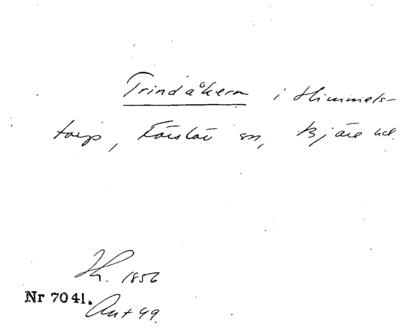 Trindåkern i Himmels-
torp, Förslöv sn, Bjäre hd.
Th. 1856
Nr 7041.
Ant 49.